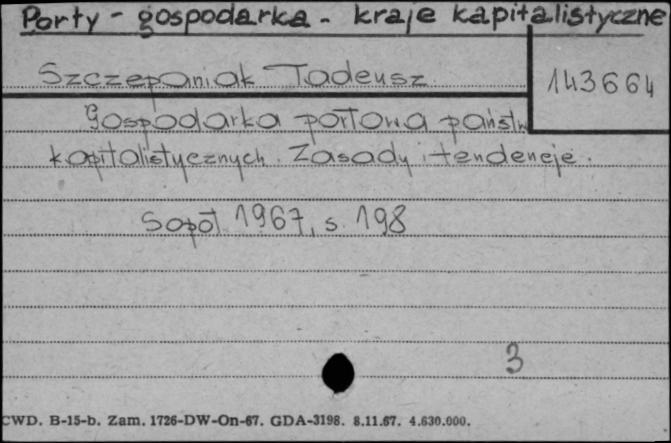 Porty - gospodarka - kraje kapitalistyczne
Szczepaniak Tadeusz
143664
Gospodarka portowa państw
kapitalistycznych. Zasady i tendencje.
Sopot 1967, s. 198
3
CWD. B-15-b. Zam. 1726-DW-On-67. GDA-3198. 8.11.67. 4.630.000.